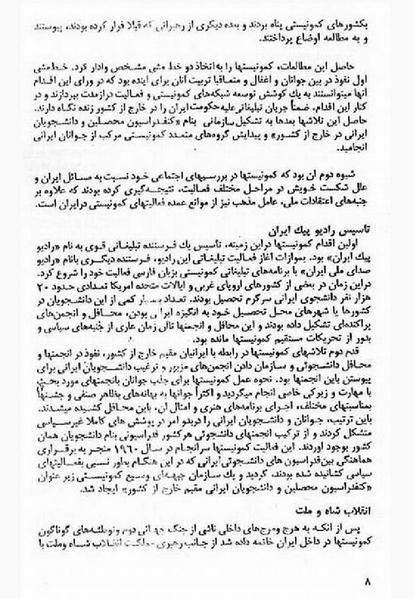 بکشورهای کمونیستی پناه بردند و بعده دیگری از رهبرانی که قبلا فرار کرده بودند، پیوستند
و به مطالعه اوضاع پرداختند.
حاصل این مطالعات، کمونیستها را به اتخاذ دو خط مشی مشخص وادار کرد. خط‌مشی
اول نفوذ در بین جوانان و اغفال و متعاقبا تربیت آنان برای آینده بود که در ورای این اقدام
آنها میتوانستند به یک کوشش توسعه شبکه‌های کمونیستی و فعالیت درازمدت بپردازند و در
کنار این اقدام، ضمنا جریان تبلیغاتی علیه حکومت ایران را در خارج از کشور زنده نگاه دارند.
حاصل این تلاشها بعدها به تشکیل سازمانی بنام «کنفدراسیون محصلین و دانشجویان
ایرانی در خارج از کشور» و پیدایش گروه‌های متعدد کمونیستی مرکب از جوانان ایرانی
انجامید.
شیوه دوم آن بود که کمونیستها در بررسیهای اجتماعی خود نسبت به مسائل ایران و
علل شکست خویش در مراحل مختلف فعالیت، نتیجه‌گیری کرده بودند که علاوه بر
جنبه‌های اعتقادات ملی، عامل مذهب نیز از موانع عمده فعالیتهای کمونیستی در ایران است.
تاسیس رادیو پیک ایران
اولین اقدام کمونیستها در این زمینه، تاسیس یک فرستنده تبلیغاتی قوی به نام «رادیو
پیک ایران» بود. بموازات آغاز فعالیت تبلیغاتی این رادیو، فرستنده دیگری با نام «رادیو
صدای ملی ایران» با برنامه‌های تبلیغاتی کمونیستی بزبان فارسی فعالیت خود را شروع کرد.
در این زمان در بعضی از کشورهای اروپای غربی و ایالات متحده آمریکا تعدادی حدود ۲۰
هزار نفر دانشجوی ایرانی سرگرم تحصیل بودند. تعداد بسیار کمی از این دانشجویان در
کشورها یا شهرهای محل تحصیل خود به انگیزه ایرانی بودن، محافل و انجمن‌های
پراکنده‌ای تشکیل داده بودند و این محافل و انجمنها تا آن زمان عاری از جنبه‌های سیاسی و
بدور از تحریکات مستقیم کمونیستها مانده بود.
قدم دوم تلاشهای کمونیستها در رابطه با ایرانیان مقیم خارج از کشور، نفوذ در انجمنها و
محافل دانشجوئی و سازمان دادن انجمن‌های مزبور و ترغیب دانشجویان ایرانی برای
پیوستن باین انجمنها بود. نحوه عمل کمونیستها برای جذب جوانان بانجمنهای مورد بحث
با مهارت و زیرکی خاصی انجام میگردید و اکثرا جوانها به بهانه‌های بظاهر صنفی و جشنها
بمناسبتهای مختلف، اجرای برنامه‌های هنری و امثال آن، باین محافل کشیده میشدند.
باین ترتیب، جوانان و دانشجویان ایرانی را در بدو امر در پوشش های کاملا غیرسیاسی
متشکل کردند و از ترکیب انجمنهای دانشجوئی هر کشور فدراسیونی بنام دانشجویان همان
کشور بوجود آوردند. این فعالیت کمونیستها سرانجام در سال ۱۹۶۰ منجر به برقراری
هماهنگی بین فدراسیون های دانشجوئی ایرانی که در این هنگام بطور نسبی بفعالیتهای
سیاسی کشانیده شده بودند، گردید و یک سازمان جبهه‌ای وسیع کمونیستی زیر عنوان
«کنفدراسیون محصلین و دانشجویان ایرانی مقیم خارج از کشور» ایجاد شد.
انقلاب شاه و ملت
پس از آنکه به هرج و مرج‌های داخلی ناشی از جنگ جهانی دوم و توطئه‌های گوناگون
کمونیستها در داخل ایران خاتمه داده شد از جانب رهبری مملکت انقلاب شاه و ملت با
۸